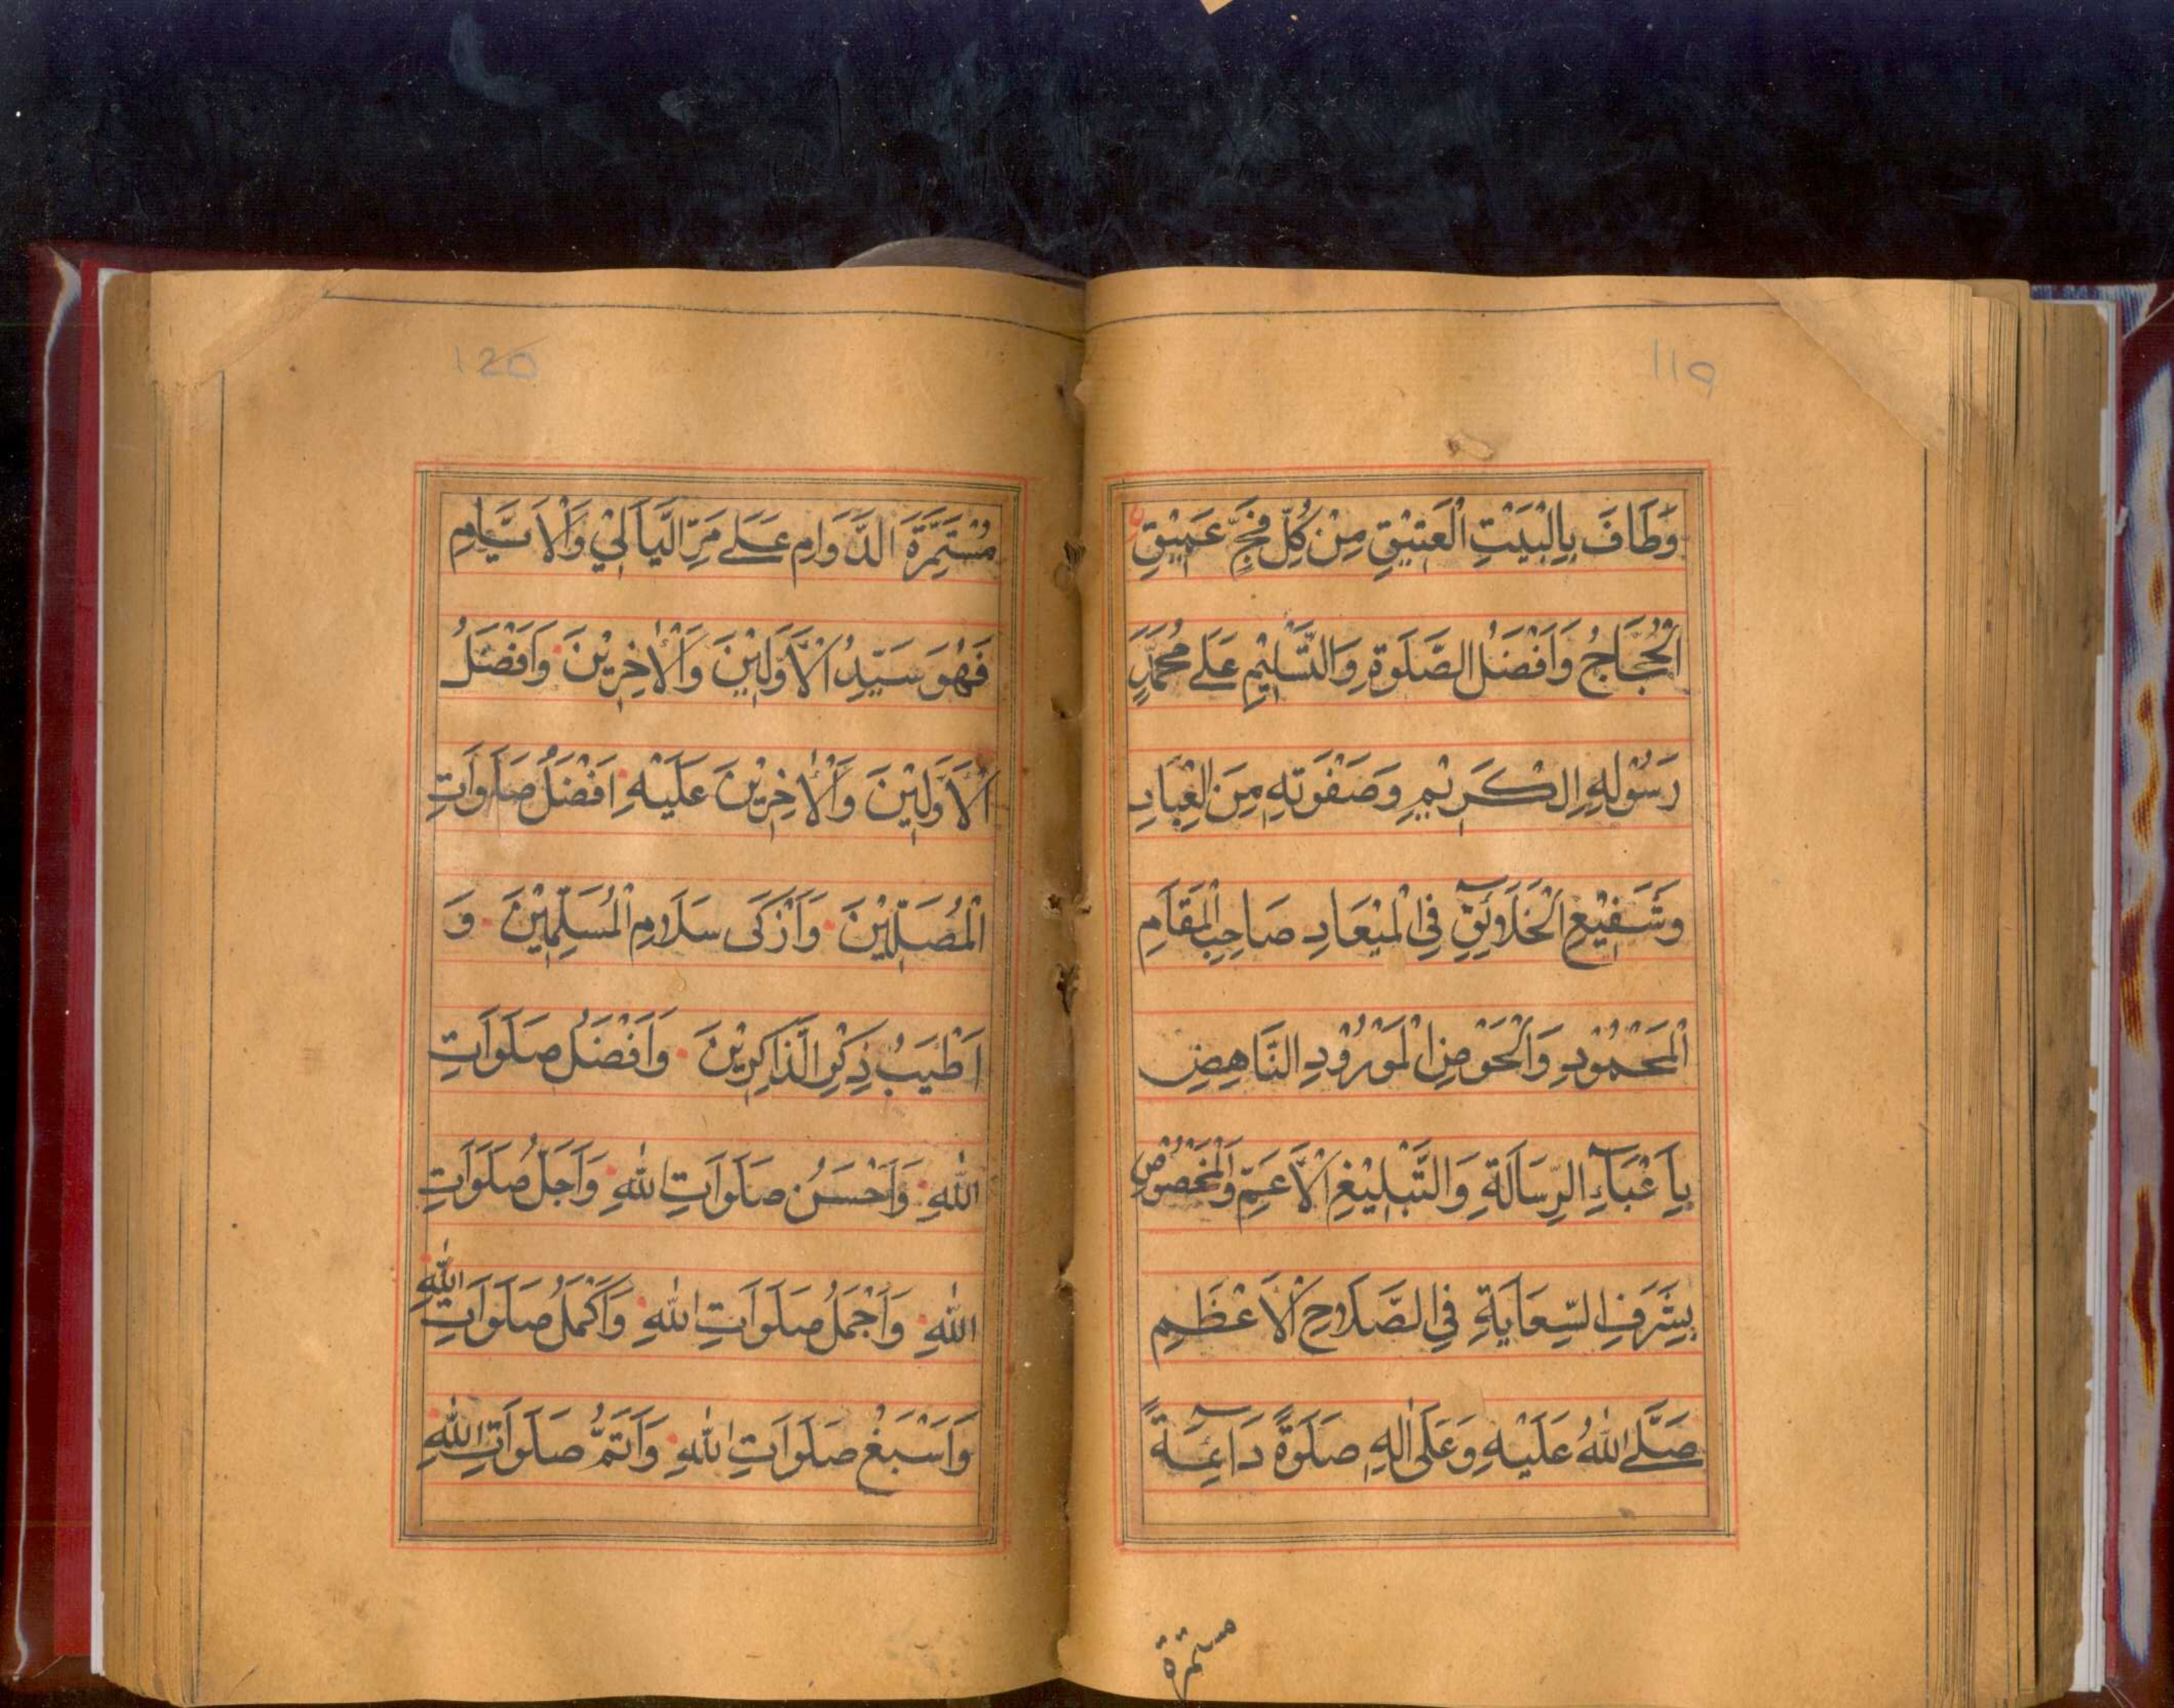 119
وَطَافَ بِالْبَيْتِ الْعَتِيْقِ مِنْ كُلِّ فَجٍّ عَمِيْقٍ
الْحُجَّاجُ وَاَفْضَلُ الصَّلٰوةِ وَالتَّسْلِيْمِ عَلٰے مُحَمَّدٍ
رَسُوْلِهِ الْكَرِيْمِ وَصَفْوَتِهٖ مِنَ الْعِبَادِ
وَشَفِيْعِ الْخَلَآئِقِ فِي الْمِيْعَادِ صَاحِبِ الْمَقَامِ
الْمَحْمُوْدِ وَالْحَوْضِ الْمَوْرُوْدِ النَّاهِضِ
بِاَعْبَآءِ الرِّسَالَةِ وَالتَّبْلِيْغِ الْاَعَمِّ وَالْمَخْصُوْصِ
بِشَرَفِ السِّعَايَةِ فِي الصَّلَاحِ الْاَعْظَمِ
صَلَّے اللّٰهُ عَلَيْهِ وَعَلٰى اٰلِهٖ صَلٰوةً دَآئِمَةً
مستمرة
120
مُسْتَمِرَّةَ الدَّوَامِ عَلٰے مَرِّ اللَّيَالِيْ وَالْاَيَّامِ
فَهُوَ سَيِّدُ الْاَوَّلِيْنَ وَالْاٰخِرِيْنَ وَاَفْضَلُ
الْاَوَّلِيْنَ وَالْاٰخِرِيْنَ عَلَيْهِ اَفْضَلُ صَلَوَاتِ
الْمُصَلِّيْنَ وَاَزْكَى سَلَامِ الْمُسَلِّمِيْنَ وَ
اَطْيَبُ ذِكْرِ الذَّاكِرِيْنَ وَاَفْضَلُ صَلَوَاتِ
اللّٰهِ وَاَحْسَنُ صَلَوَاتِ اللّٰهِ وَاَجَلُّ صَلَوَاتِ
اللّٰهِ وَاَجْمَلُ صَلَوَاتِ اللّٰهِ وَاَكْمَلُ صَلَوَاتِ اللّٰهِ
وَاَسْبَغُ صَلَوَاتِ اللّٰهِ وَاَتَمُّ صَلَوَاتِ اللّٰهِ